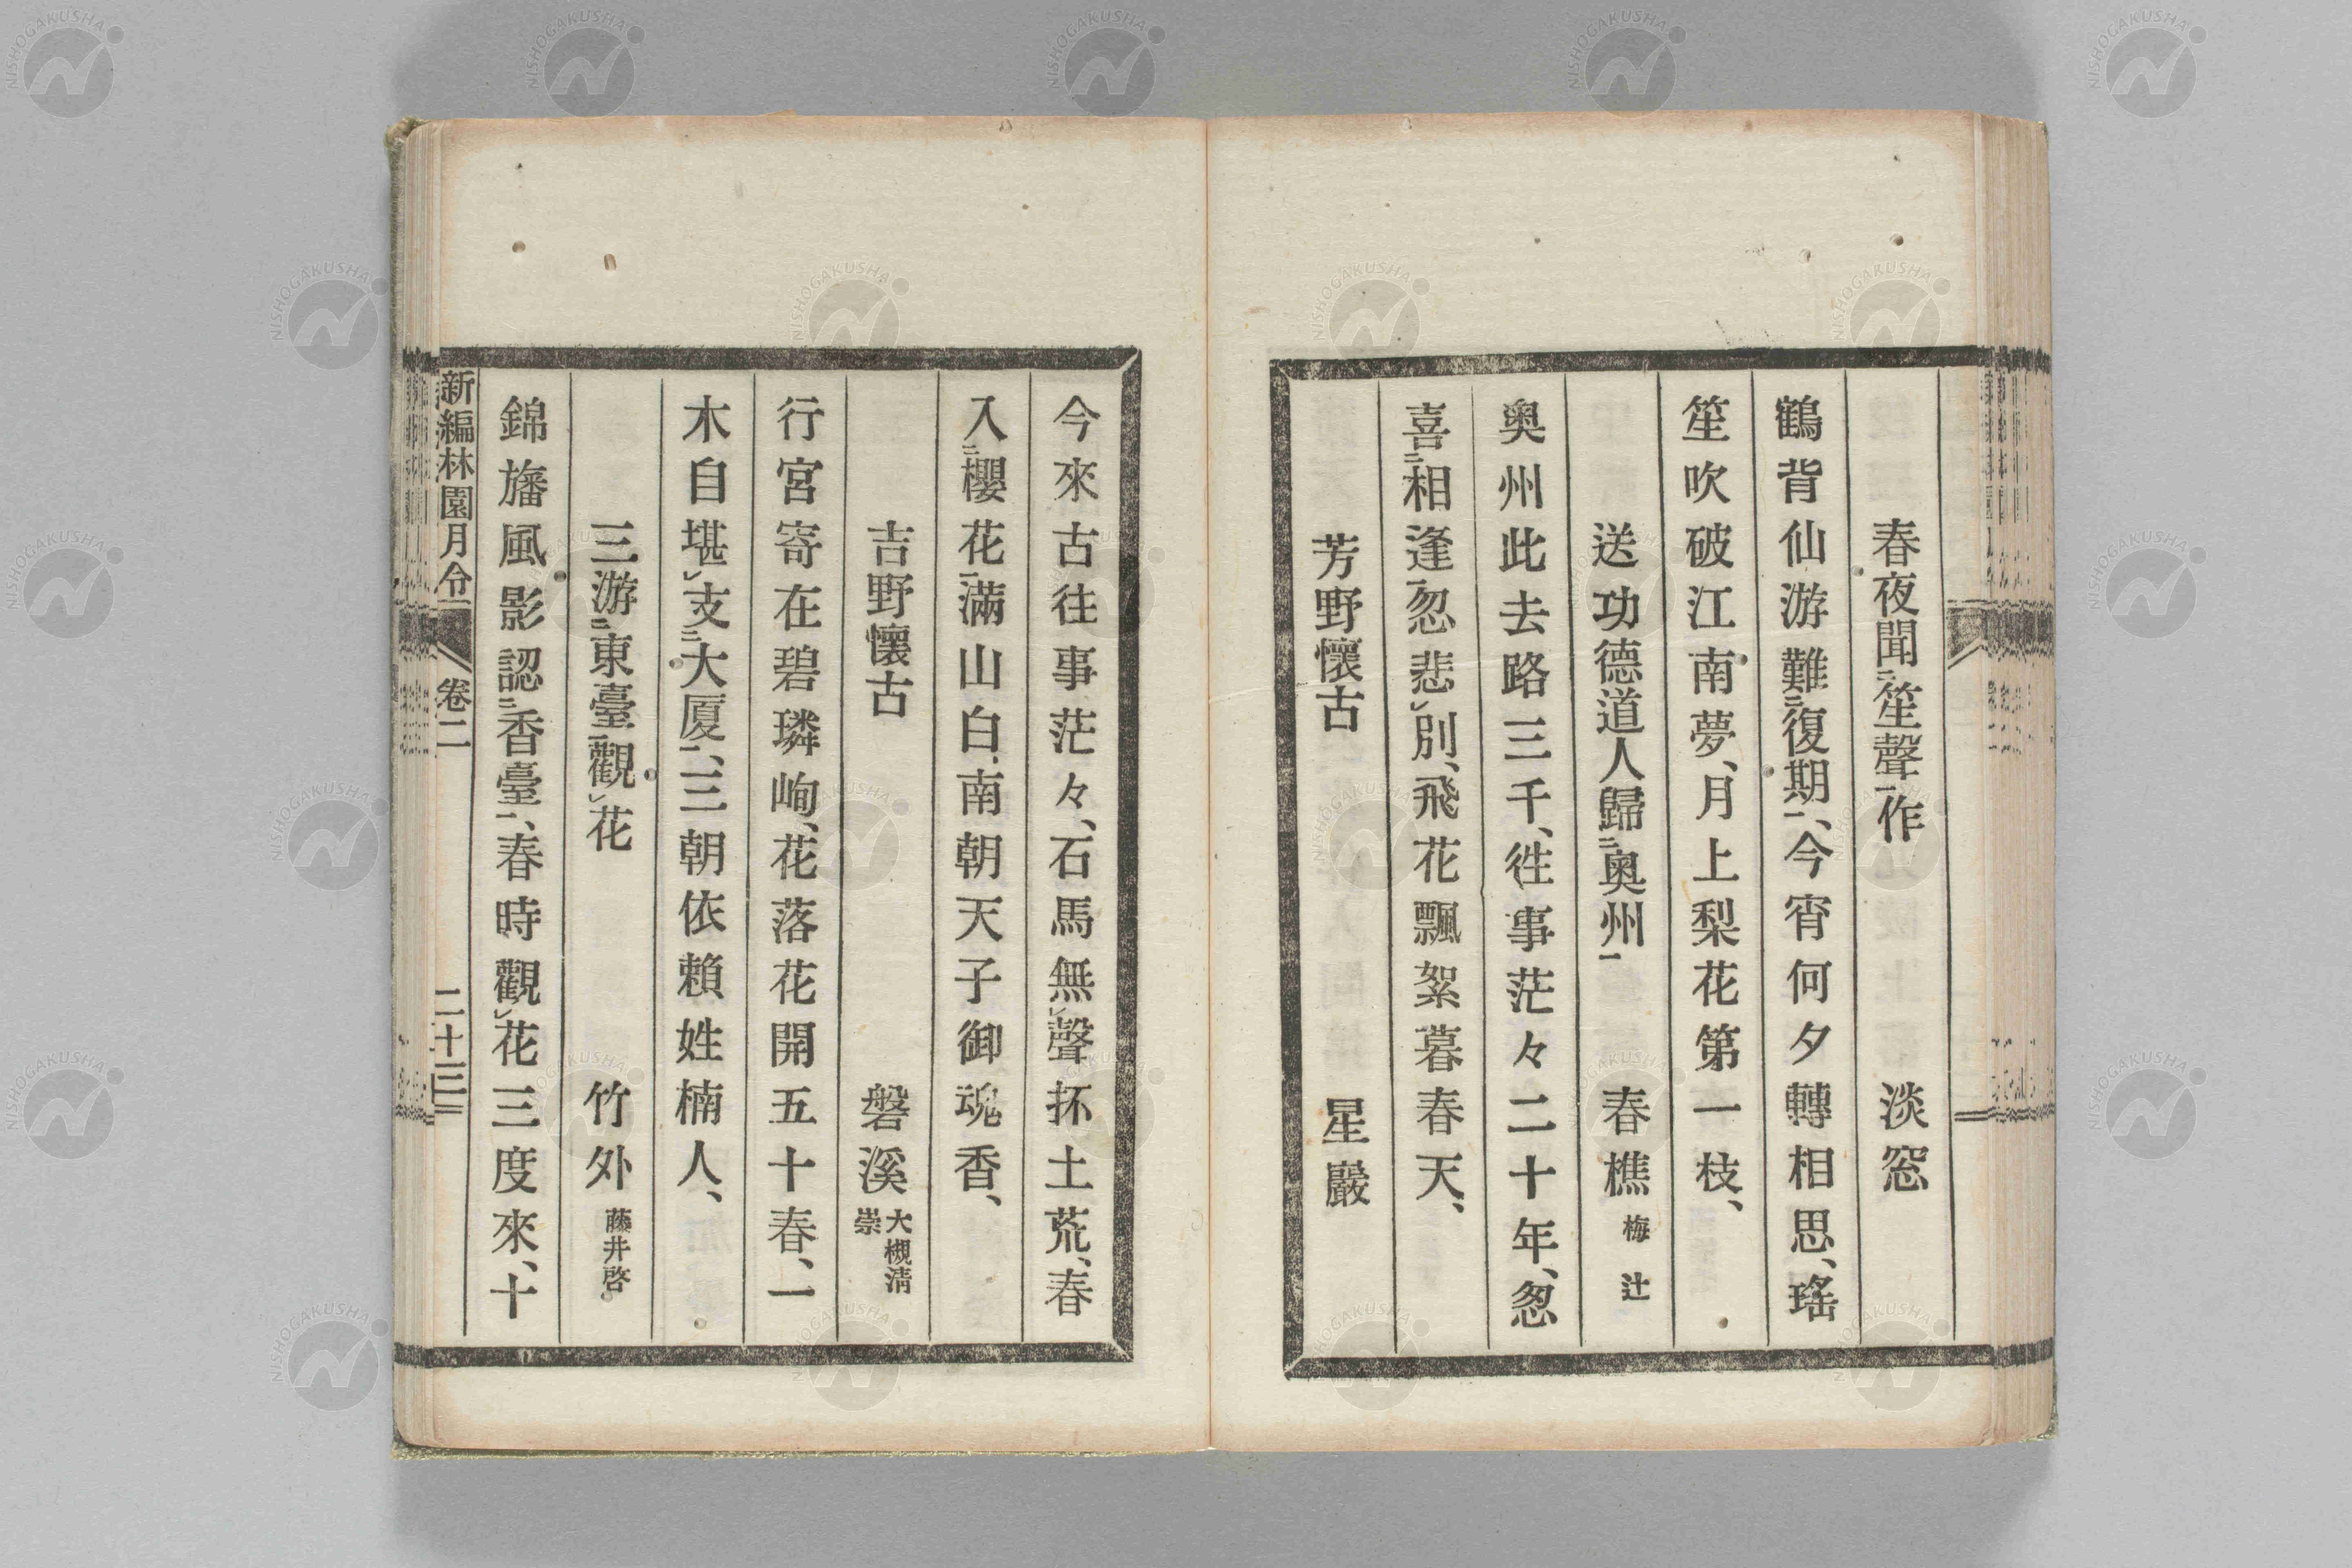 春夜聞二笙聲一作　淡窓
鶴背仙游難二復期一、今宵何夕轉相思、瑤
笙吹破江南夢、月上梨花第一枝、
送功德道人歸二奧州一　春樵 梅辻
奧州此去路三千、徃事茫々二十年、忽
喜三相逢一忽悲レ別、飛花飄絮暮春天、
芳野懷古　星巖
今來古往事茫々、石馬無レ聲抔土荒、春
入二櫻花一滿山白、南朝天子御魂香、
吉野懷古　磐溪 大槻淸崇
行宮寄在碧嶙峋、花落花開五十春、一
木自堪レ支二大厦一、三朝依賴姓楠人、
三游二東臺一觀レ花　竹外 藤井啓
錦旛風影認二香臺一、春時觀レ花三度來、十
新編林園月令　卷二　二十三
NISHOGAKUSHA